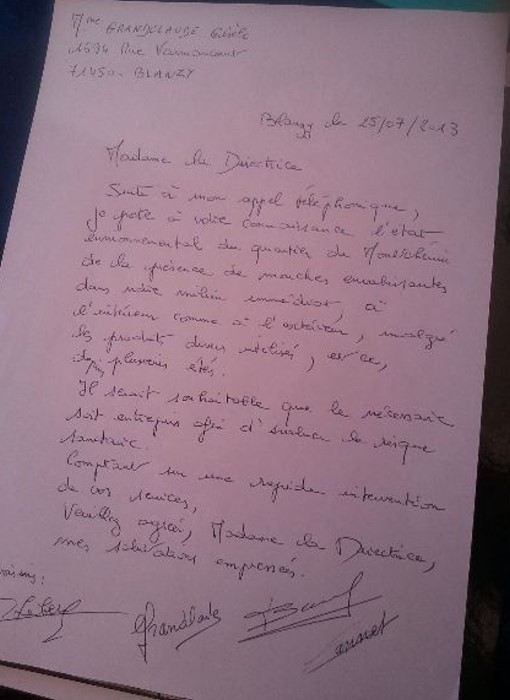 Mme GRANDCLAUDE Gisèle
1694 Rue
71450 - BLANZY
Blanzy le 25/07/2013
Madame la Directrice
Suite à mon appel téléphonique,
je porte à votre connaissance l'état
environnemental du quartier du
de la présence de mouches envahissantes
dans notre milieu immédiat, à
l'intérieur comme à l'extérieur, malgré
les produits divers utilisés, et ce,
depuis plusieurs étés.
Il serait souhaitable que le nécessaire
soit entrepris afin d'évaluer le risque
sanitaire.
Comptant sur une rapide intervention
de vos services,
Veuillez agréer, Madame la Directrice,
mes salutations empressées.
Grandclaude